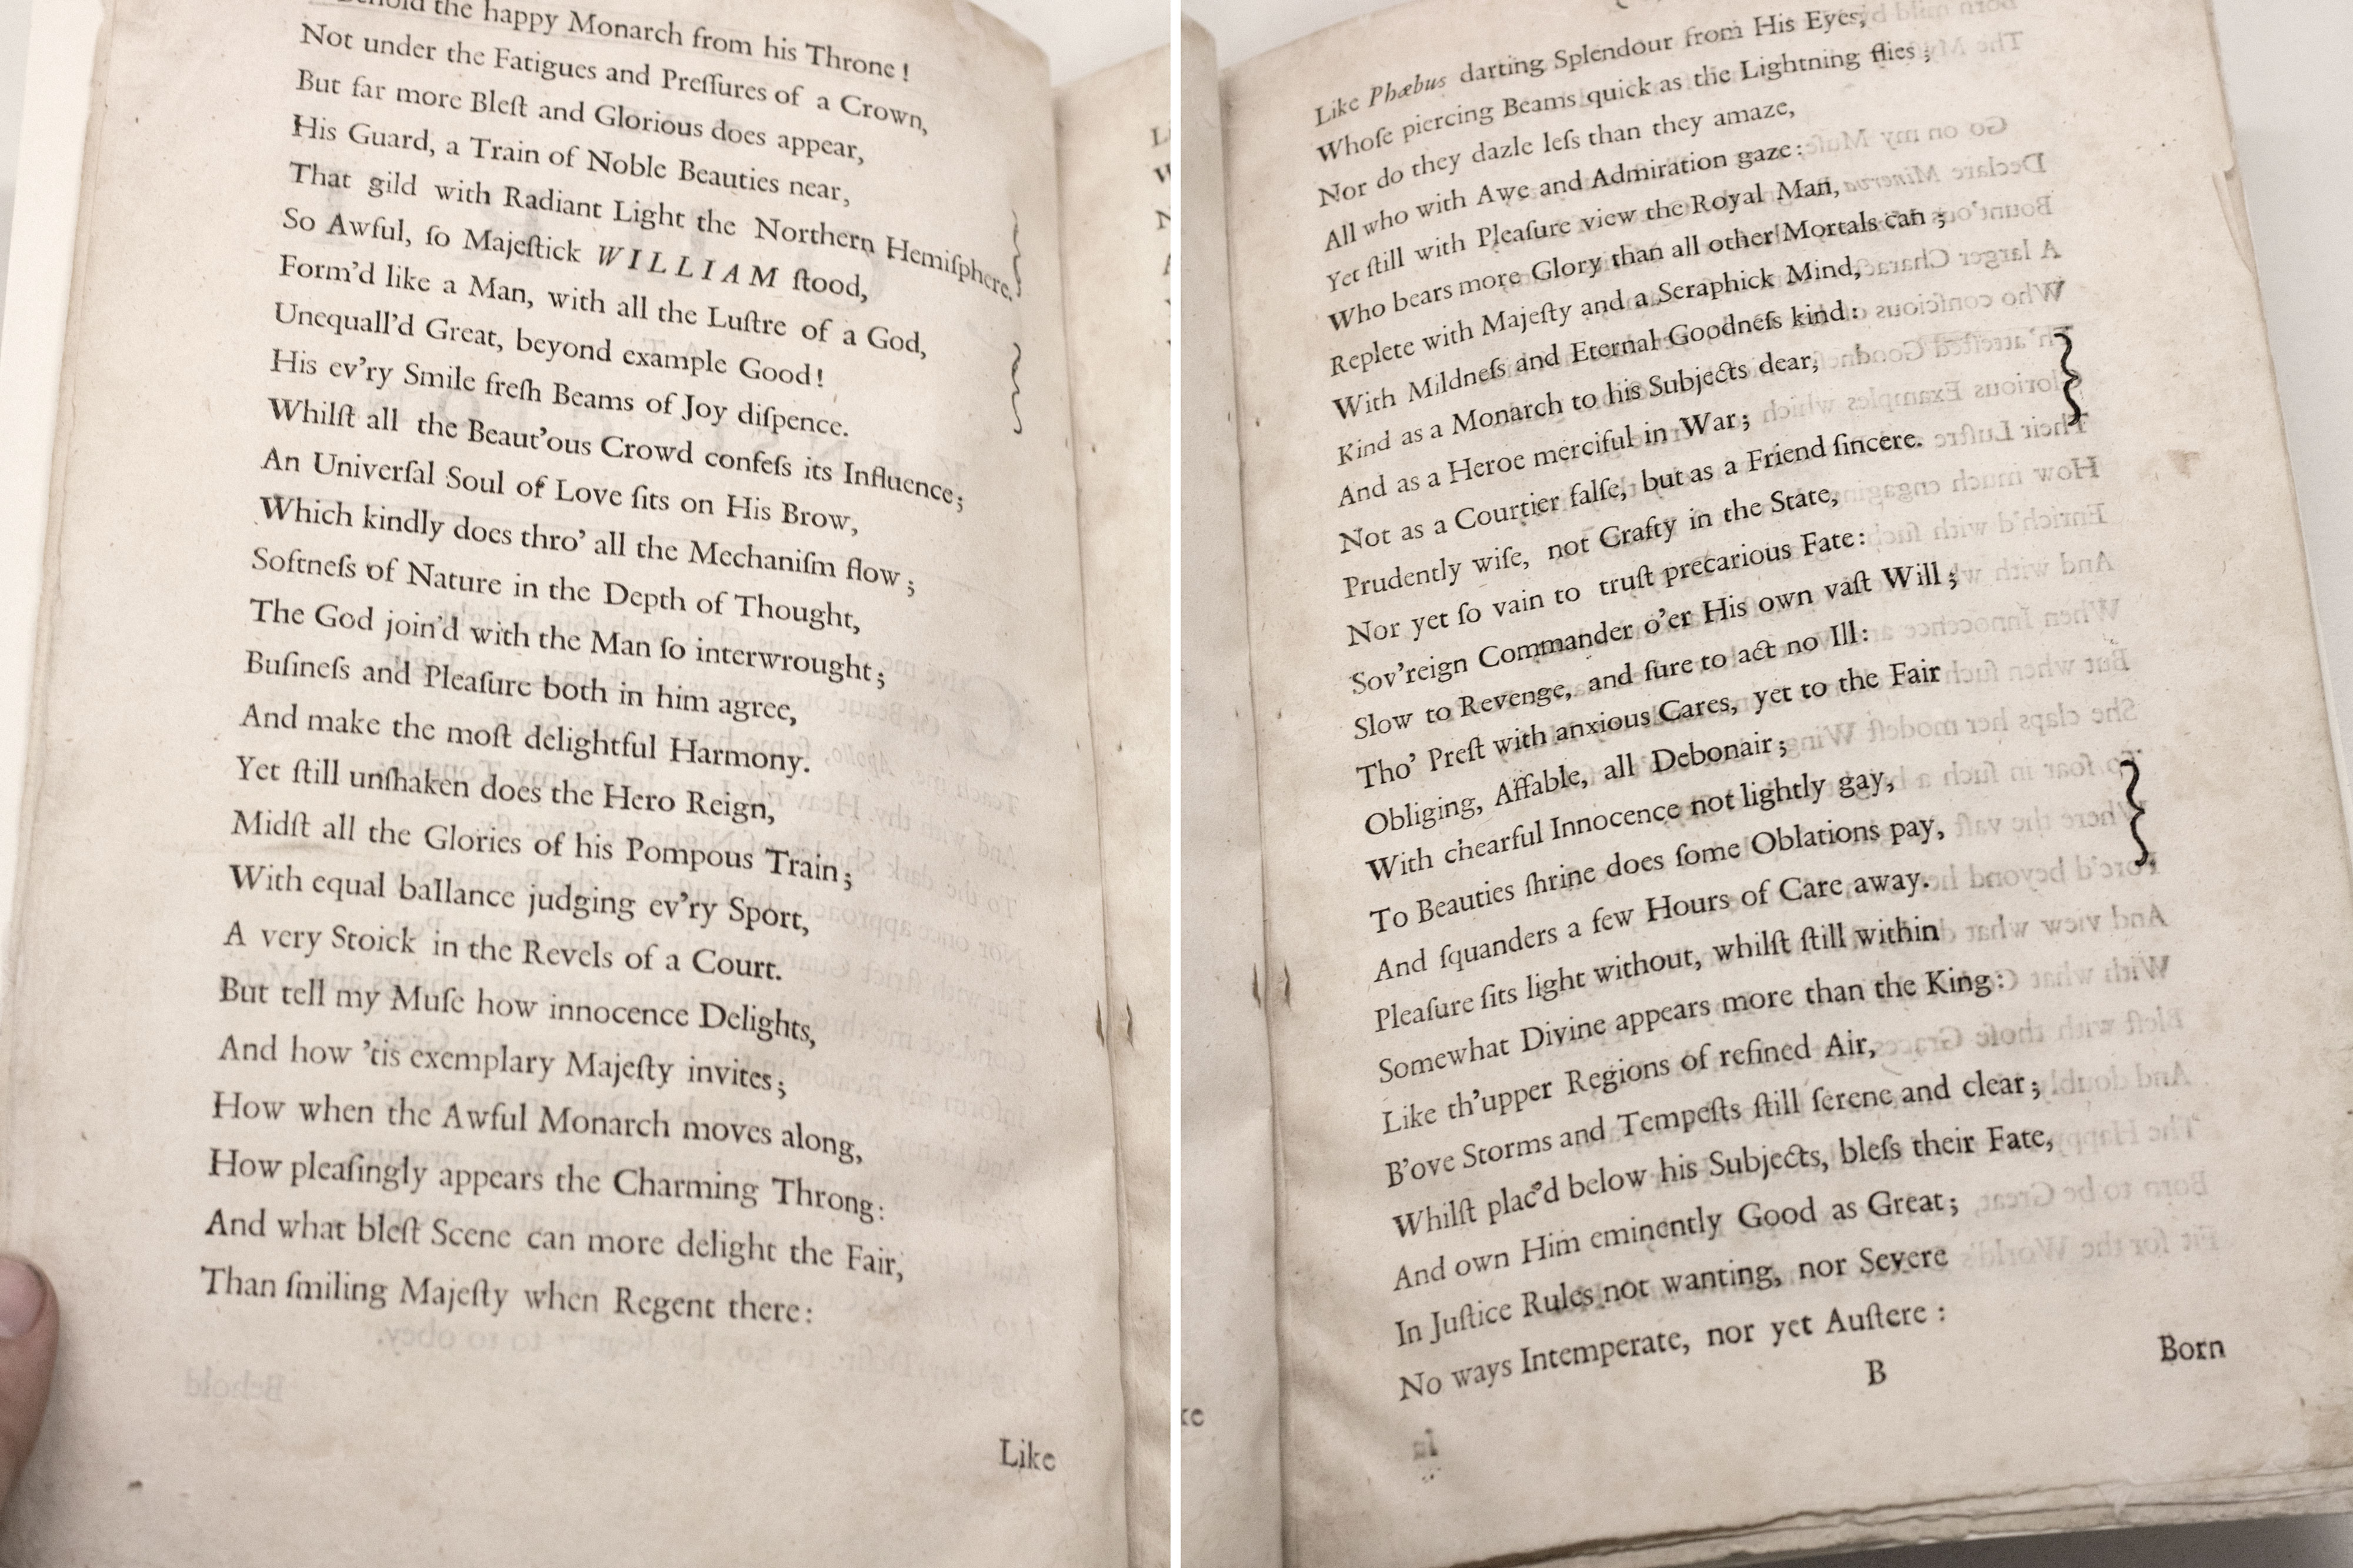 Behold the happy Monarch from his Throne !
Not under the Fatigues and Preſſures of a Crown,
But far more Bleſt and Glorious does appear,
His Guard, a Train of Noble Beauties near,
That gild with Radiant Light the Northern Hemiſphere,
So Awful, ſo Majeſtick WILLIAM ſtood,
Form'd like a Man, with all the Luſtre of a God,
Unequall'd Great, beyond example Good!
His ev'ry Smile freſh Beams of Joy diſpence.
Whilſt all the Beaut'ous Crowd confeſs its Influence;
An Univerſal Soul of Love ſits on His Brow,
Which kindly does thro' all the Mechaniſm flow ;
Softneſs of Nature in the Depth of Thought,
The God join'd with the Man ſo interwrought;
Buſineſs and Pleaſure both in him agree,
And make the moſt delightful Harmony.
Yet ſtill unſhaken does the Hero Reign,
Midſt all the Glories of his Pompous Train;
With equal ballance judging ev'ry Sport,
A very Stoick in the Revels of a Court.
But tell my Muſe how innocence Delights,
And how 'tis exemplary Majeſty invites;
How when the Awful Monarch moves along,
How pleaſingly appears the Charming Throng:
And what bleſt Scene can more delight the Fair,
Than ſmiling Majeſty when Regent there:
Like
Like Phæbus darting Splendour from His Eyes,
Whoſe piercing Beams quick as the Lightning flies ;
Nor do they dazle leſs than they amaze,
All who with Awe and Admiration gaze:
Yet ſtill with Pleaſure view the Royal Man,
Who bears more Glory than all other Mortals can ;
Replete with Majeſty and a Seraphick Mind,
With Mildneſs and Eternal Goodneſs kind:
Kind as a Monarch to his Subjects dear,
And as a Heroe merciful in War;
Not as a Courtier falſe, but as a Friend ſincere.
Prudently wiſe, not Crafty in the State,
Nor yet ſo vain to truſt precarious Fate:
Sov'reign Commander o'er His own vaſt Will;
Slow to Revenge, and ſure to act no Ill:
Tho' Preſt with anxious Cares, yet to the Fair
Obliging, Affable, all Debonair;
With chearful Innocence not lightly gay,
To Beauties ſhrine does ſome Oblations pay,
And ſquanders a few Hours of Care away.
Pleaſure ſits light without, whilſt ſtill within
Somewhat Divine appears more than the King:
Like th'upper Regions of refined Air,
B'ove Storms and Tempeſts ſtill ſerene and clear;
Whilſt plac'd below his Subjects, bleſs their Fate,
And own Him eminently Good as Great;
In Juſtice Rules not wanting, nor Severe
No ways Intemperate, nor yet Auſtere :
B
Born